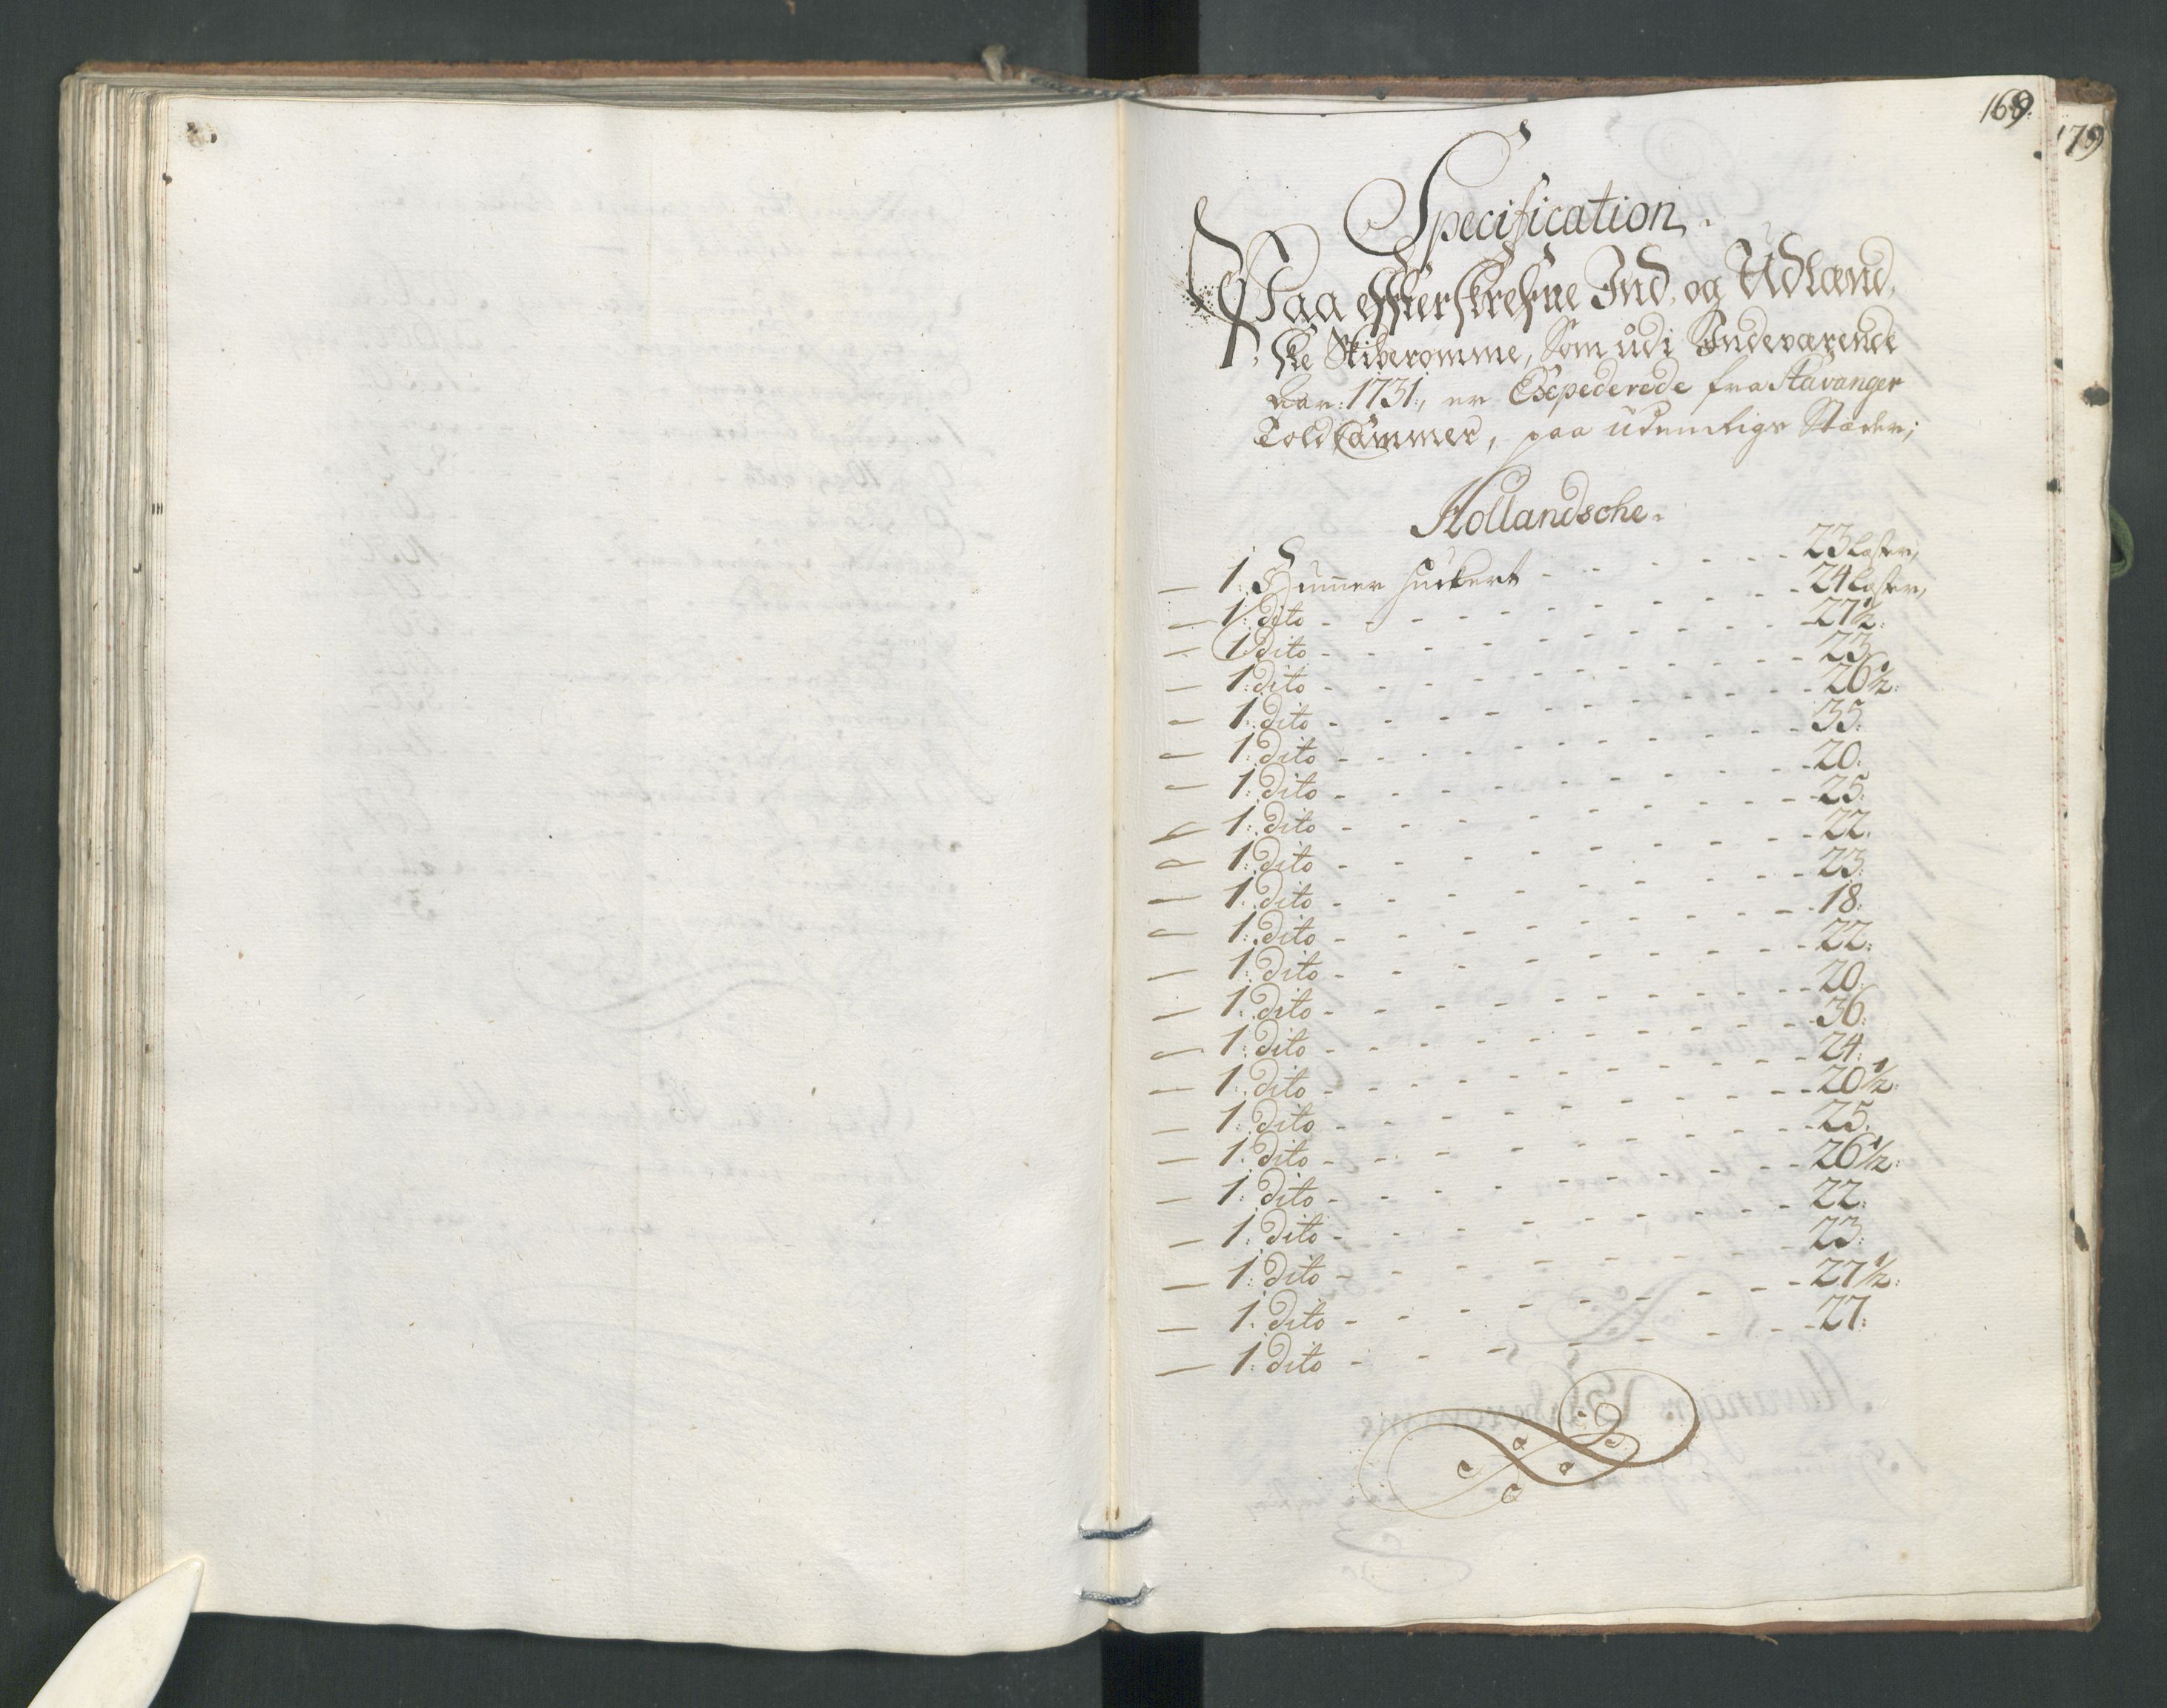 169
179
Specification
Paa effterskrefne Ind, og Udlænd,
ske Skiberomme, Som udi Indeværende
Aar: 1731, er Expederede fra Stavanger
Told Cammer, paa udenrigs Stæder;
Hollandsche.
1: Hummer huckert - - - - - 23 læster,
1: dito - - - - - 24 læster,
1 dito - - - - - 27½:
1: dito - - - - - 23
1: dito - - - - - 26½:
1: dito - - - - - 35:
1: dito - - - - - 20:
1: dito - - - - - 25:
1: dito - - - - - 22:
1: dito - - - - - 23:
1: dito - - - - - 18:
1: dito - - - - - 22:
1: dito - - - - - 20:
1: dito - - - - - 36:
1: dito - - - - - 24:
1: dito - - - - - 20½:
1: dito - - - - - 25:
1: dito - - - - - 26½:
1: dito - - - - - 22:
1: dito - - - - - 23:
1: dito - - - - - 27½:
1: dito - - - - - 27: